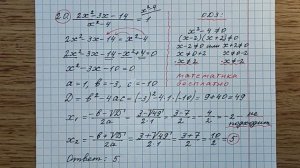 20) (2x²-3x-14)/(x²-4) = 1 | x²-4
2x²-3x-14 = x²-4
2x²-3x-14-x²+4=0
x²-3x-10=0
a=1, b=-3, c=-10
D=b²-4ac=(-3)²-4·1·(-10)=9+40=49
x₁ = (-b-√D)/2a = (3-√49)/2·1 = (3-7)/2 = -4/2 = -2 - не подходит
x₂ = (-b+√D)/2a = (3+√49)/2·1 = (3+7)/2 = 10/2 = 5
Ответ: 5.
ОДЗ:
x²-4≠0
(x-2)(x+2)≠0
x-2≠0 или x+2≠0
x≠0+2 x≠0-2
x≠2 x≠-2
математика
бесплатно